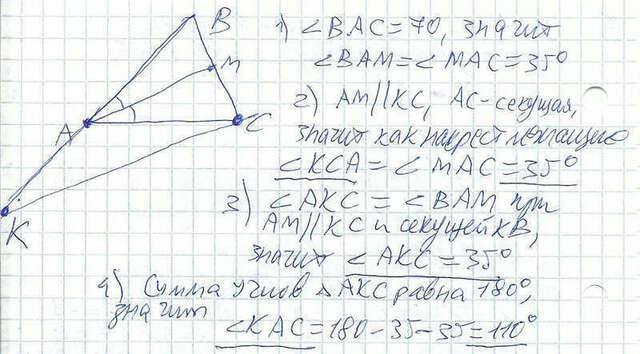 B
M
A
C
K
1) ∠BAC=70, значит
∠BAM=∠MAC=35°
2) AM||KC, AC-секущая,
значит как накрест лежащие
∠KCA=∠MAC=35°
3) ∠AKC=∠BAM при
AM||KC и секущей KB,
значит ∠AKC=35°
4) Сумма углов △AKC равна 180°,
значит
∠KAC=180-35-35=110°